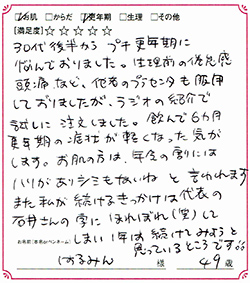 ☑お肌 □からだ ☑更年期 □生理 □その他
[満足度]☆☆☆☆☆
30代後半から プチ更年期に
悩んでおりました。生理前の倦怠感
頭痛など、他者のプラセンタも服用
しておりましたが、ラジオの紹介で
試しに注文しました。飲んで6ヵ月
更年期の症状が軽くなった気が
します。お肌の方は、年令の割には
ハリがありシミもないねと言われます
また私が続けるきっかけは代表の
石井さんの字にほれぼれ(笑)して
お名前(本名orペンネーム) しまい1年は続けてみようと
思っているところです
はるみん 様 49歳